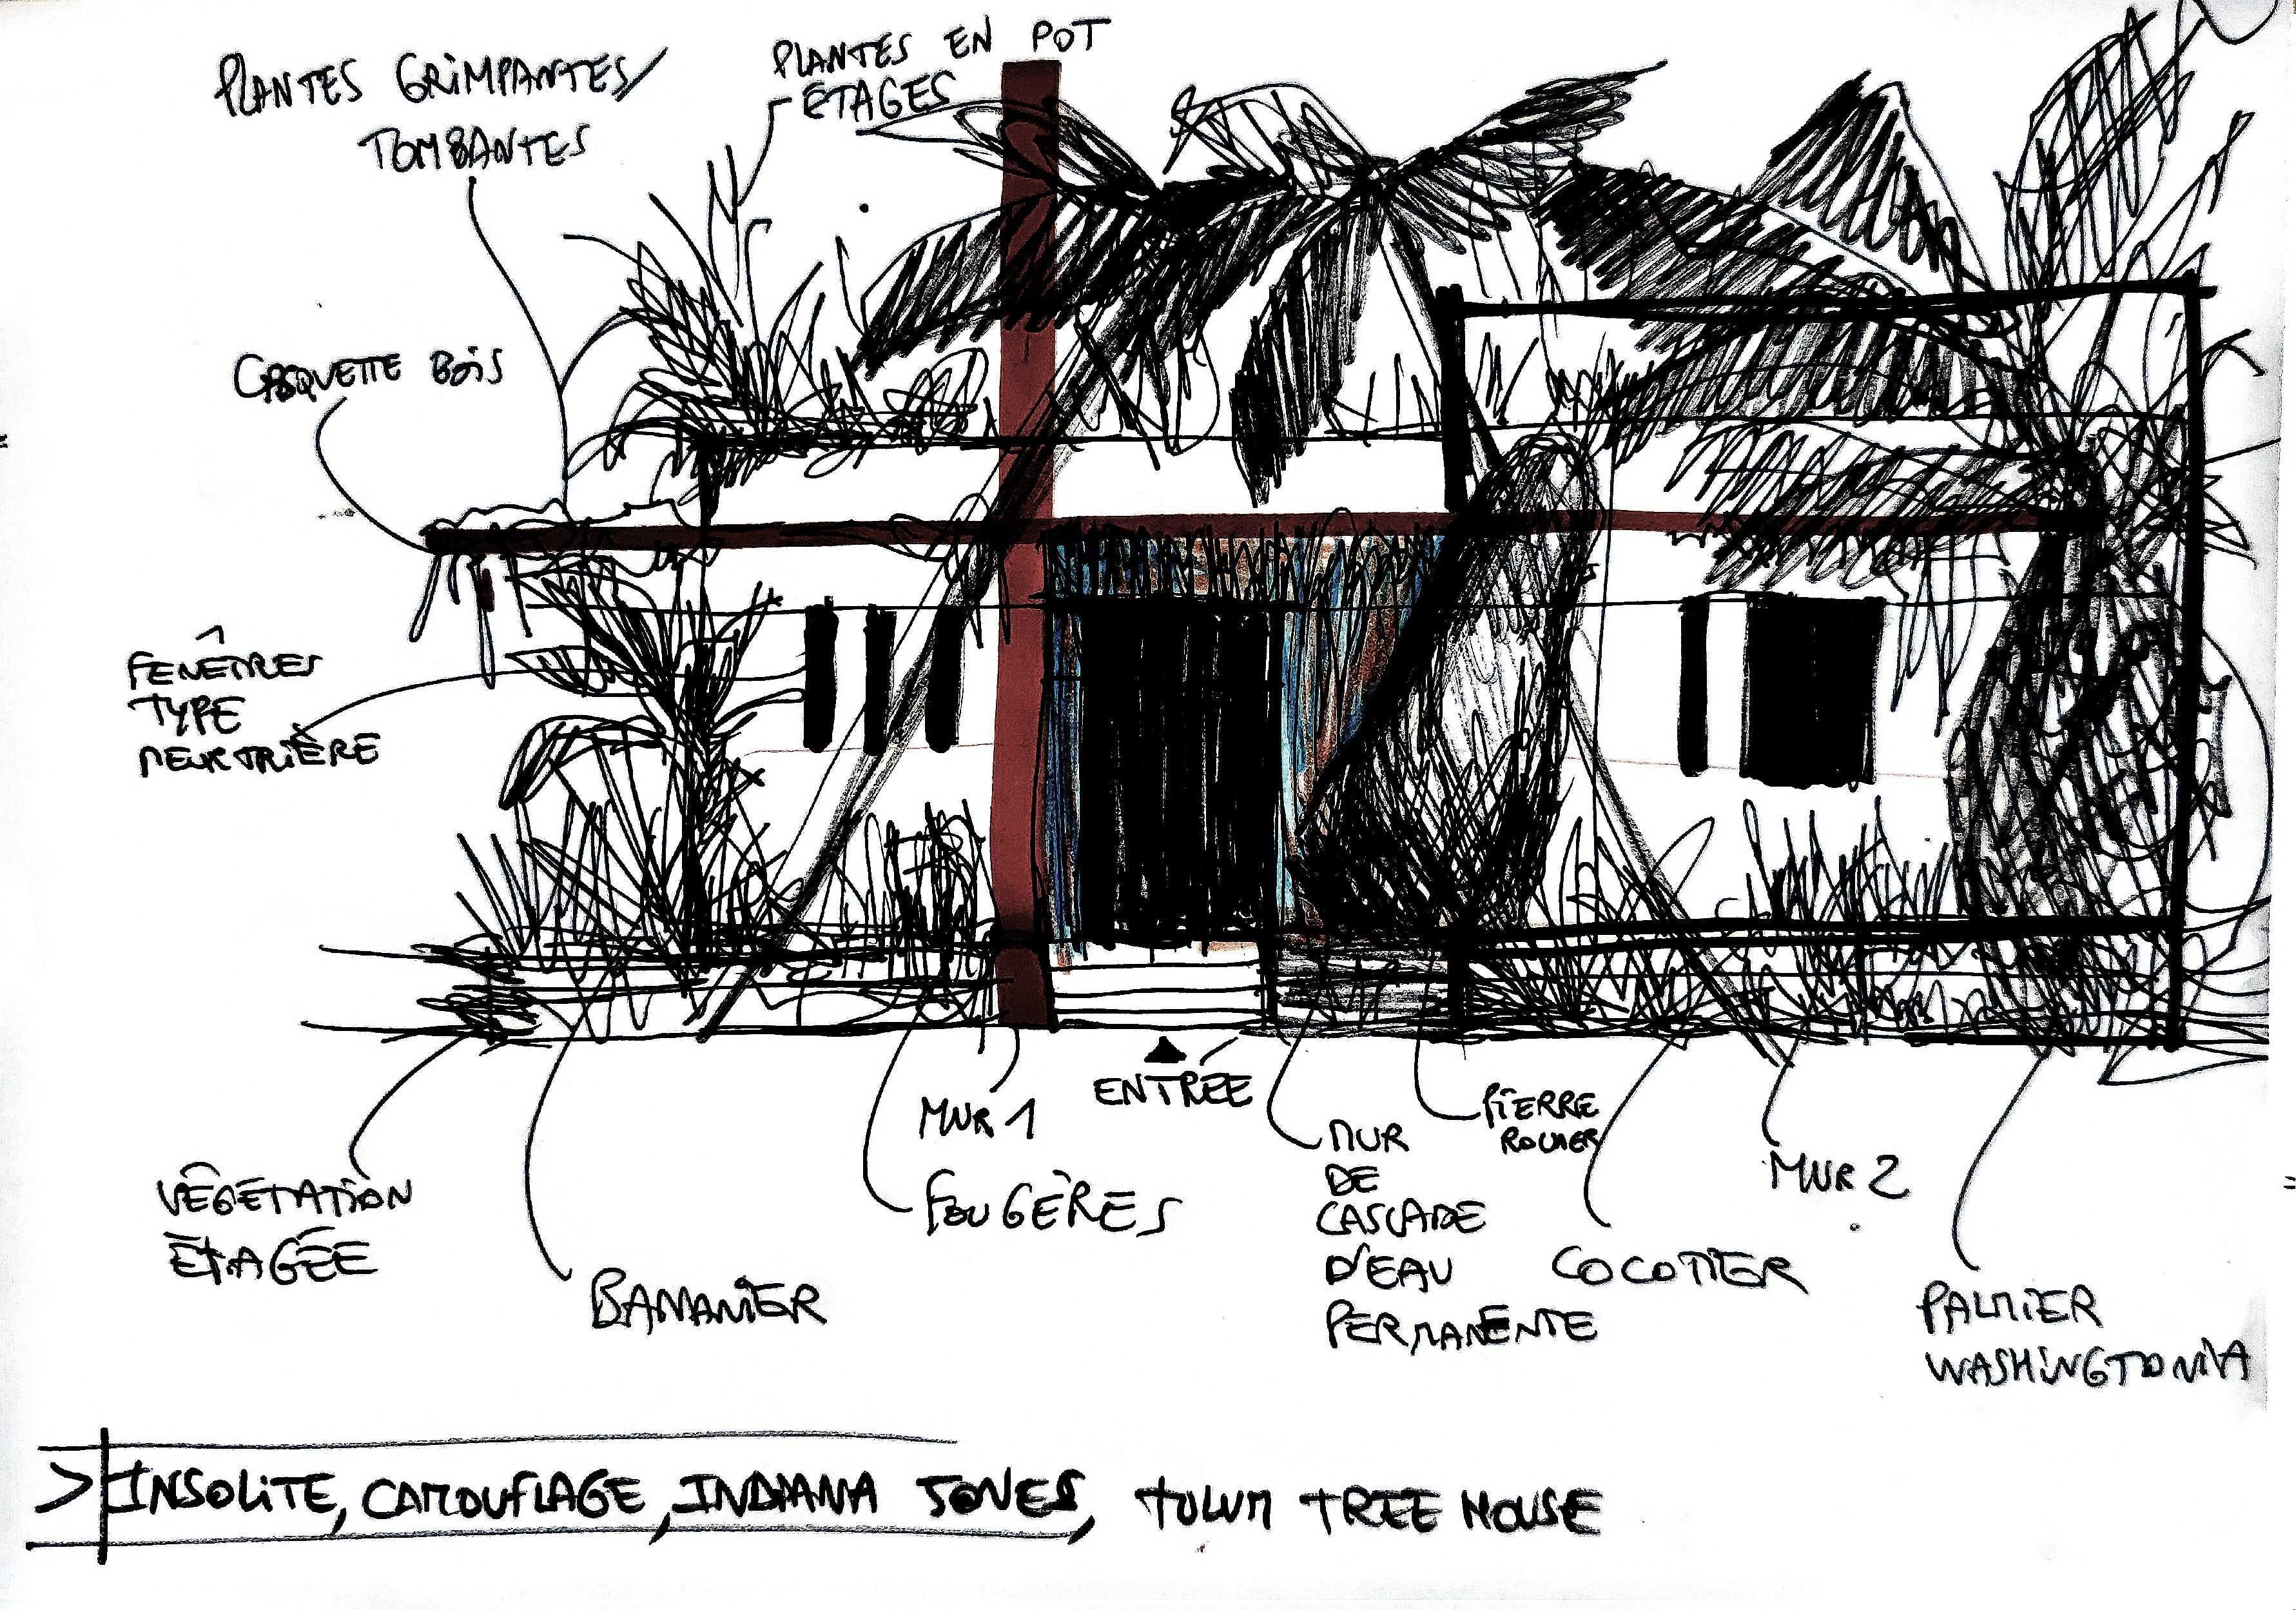 PLANTES GRIMPANTES/
TOMBANTES
PLANTES EN POT
ÉTAGES
CASQUETTE BOIS
FENÊTRES
TYPE
MEURTRIÈRE
VÉGÉTATION
ÉTAGÉE
BANANIER
MUR 1
FOUGÈRES
ENTRÉE
MUR
DE
CASCADE
D'EAU
PERMANENTE
PIERRE
ROCHER
COCOTIER
MUR 2
PALMIER
WASHINGTONIA
> INSOLITE, CAMOUFLAGE, INDIANA JONES, TULUM TREE HOUSE